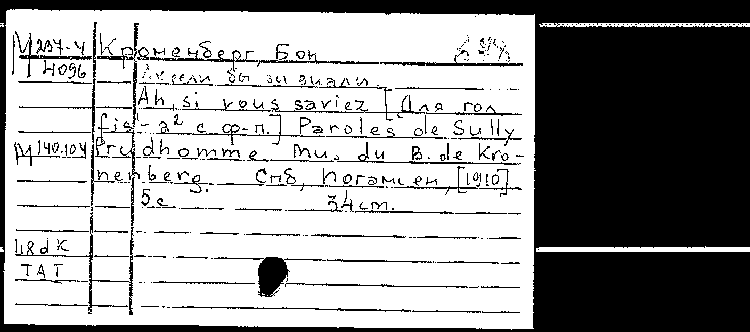 М 237-4 Кроненберг, Бон
М 4096 Ах если бы вы знали
Ah, si vous saviez [Для гол
fis¹-a² с ф-п.] Paroles de Sully
М 140.104 Prudhomme. Mu. du B. de Kro-
nenberg. Спб, Иогансен, [1910]
5 с 34 cm.
ТАТ